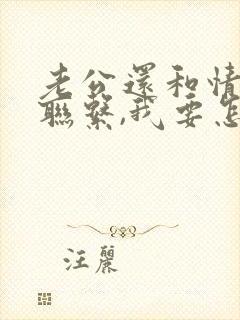 老公還和情
聯繫,我要怎
汪麗